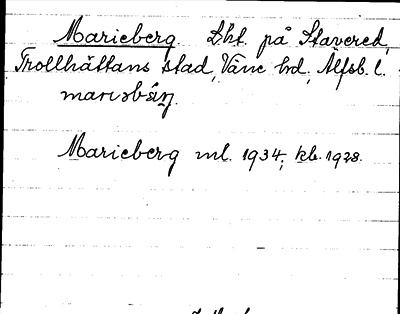 Marieberg Lht. på Stavered,
Trollhättans stad, Väne hd, Älfsb. l.

Marieberg ml. 1934; kb. 1928.